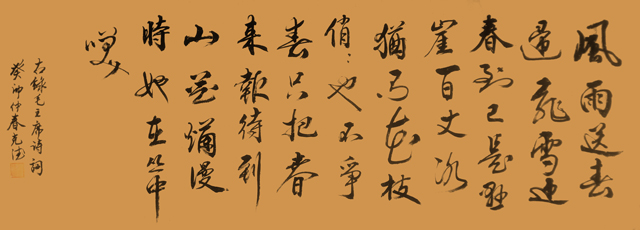 風雨送春
歸飛雪迎
春到已是懸
崖百丈冰
猶有花枝
俏〻也不爭
春只把春
来報待到
山花爛漫
時她在丛中
笑
右録毛主席诗詞
癸卯仲春